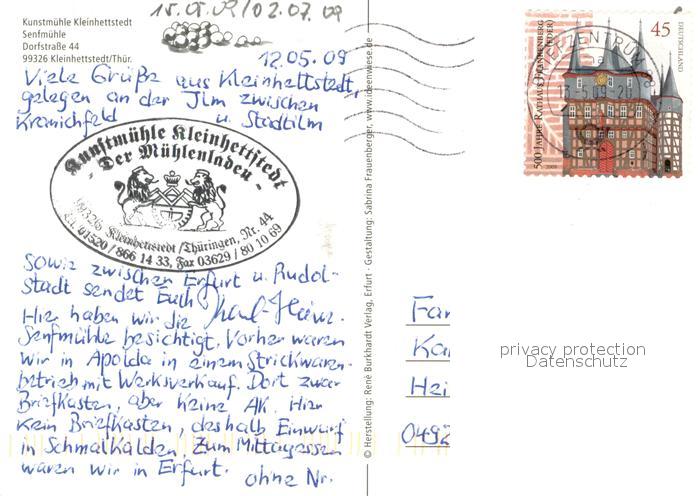 15.05.09/02.07.09
Kunstmühle Kleinhettstedt
Senfmühle
Dorfstraße 44
99326 Kleinhettstedt/Thür.
12.05.09
Viele Grüße aus Kleinhettstedt,
gelegen an der Ilm zwischen
Kranichfeld u. Stadtilm
Kunstmühle Kleinhettstedt
- Der Mühlenladen -
99326 Kleinhettstedt/Thüringen, Nr. 44
Tel. 01520 / 866 14 33, Fax 03629 / 80 10 69
Sowie zwischen Erfurt u. Rudol-
stadt sendet Euch Karl-Heinz.
Hier haben wir die
Senfmühle besichtigt. Vorher waren
wir in Apolda in einem Strickwaren-
betrieb mit Werksverkauf. Dort zwar
Briefkasten, aber keine AK. Hier
kein Briefkasten, deshalb Einwurf
in Schmalkalden. Zum Mittagessen
waren wir in Erfurt.
ohne Nr.
© Herstellung: René Burkhardt Verlag, Erfurt · Gestaltung: Sabrina Frauenberger, www.ideenwiese.de
500 JAHRE RATHAUS FRANKENBERG
(EDER)
45
DEUTSCHLAND
BRIEFZENTRUM
13.-5.09-20
Fam
Ka
Hei
0492
privacy protection
Datenschutz